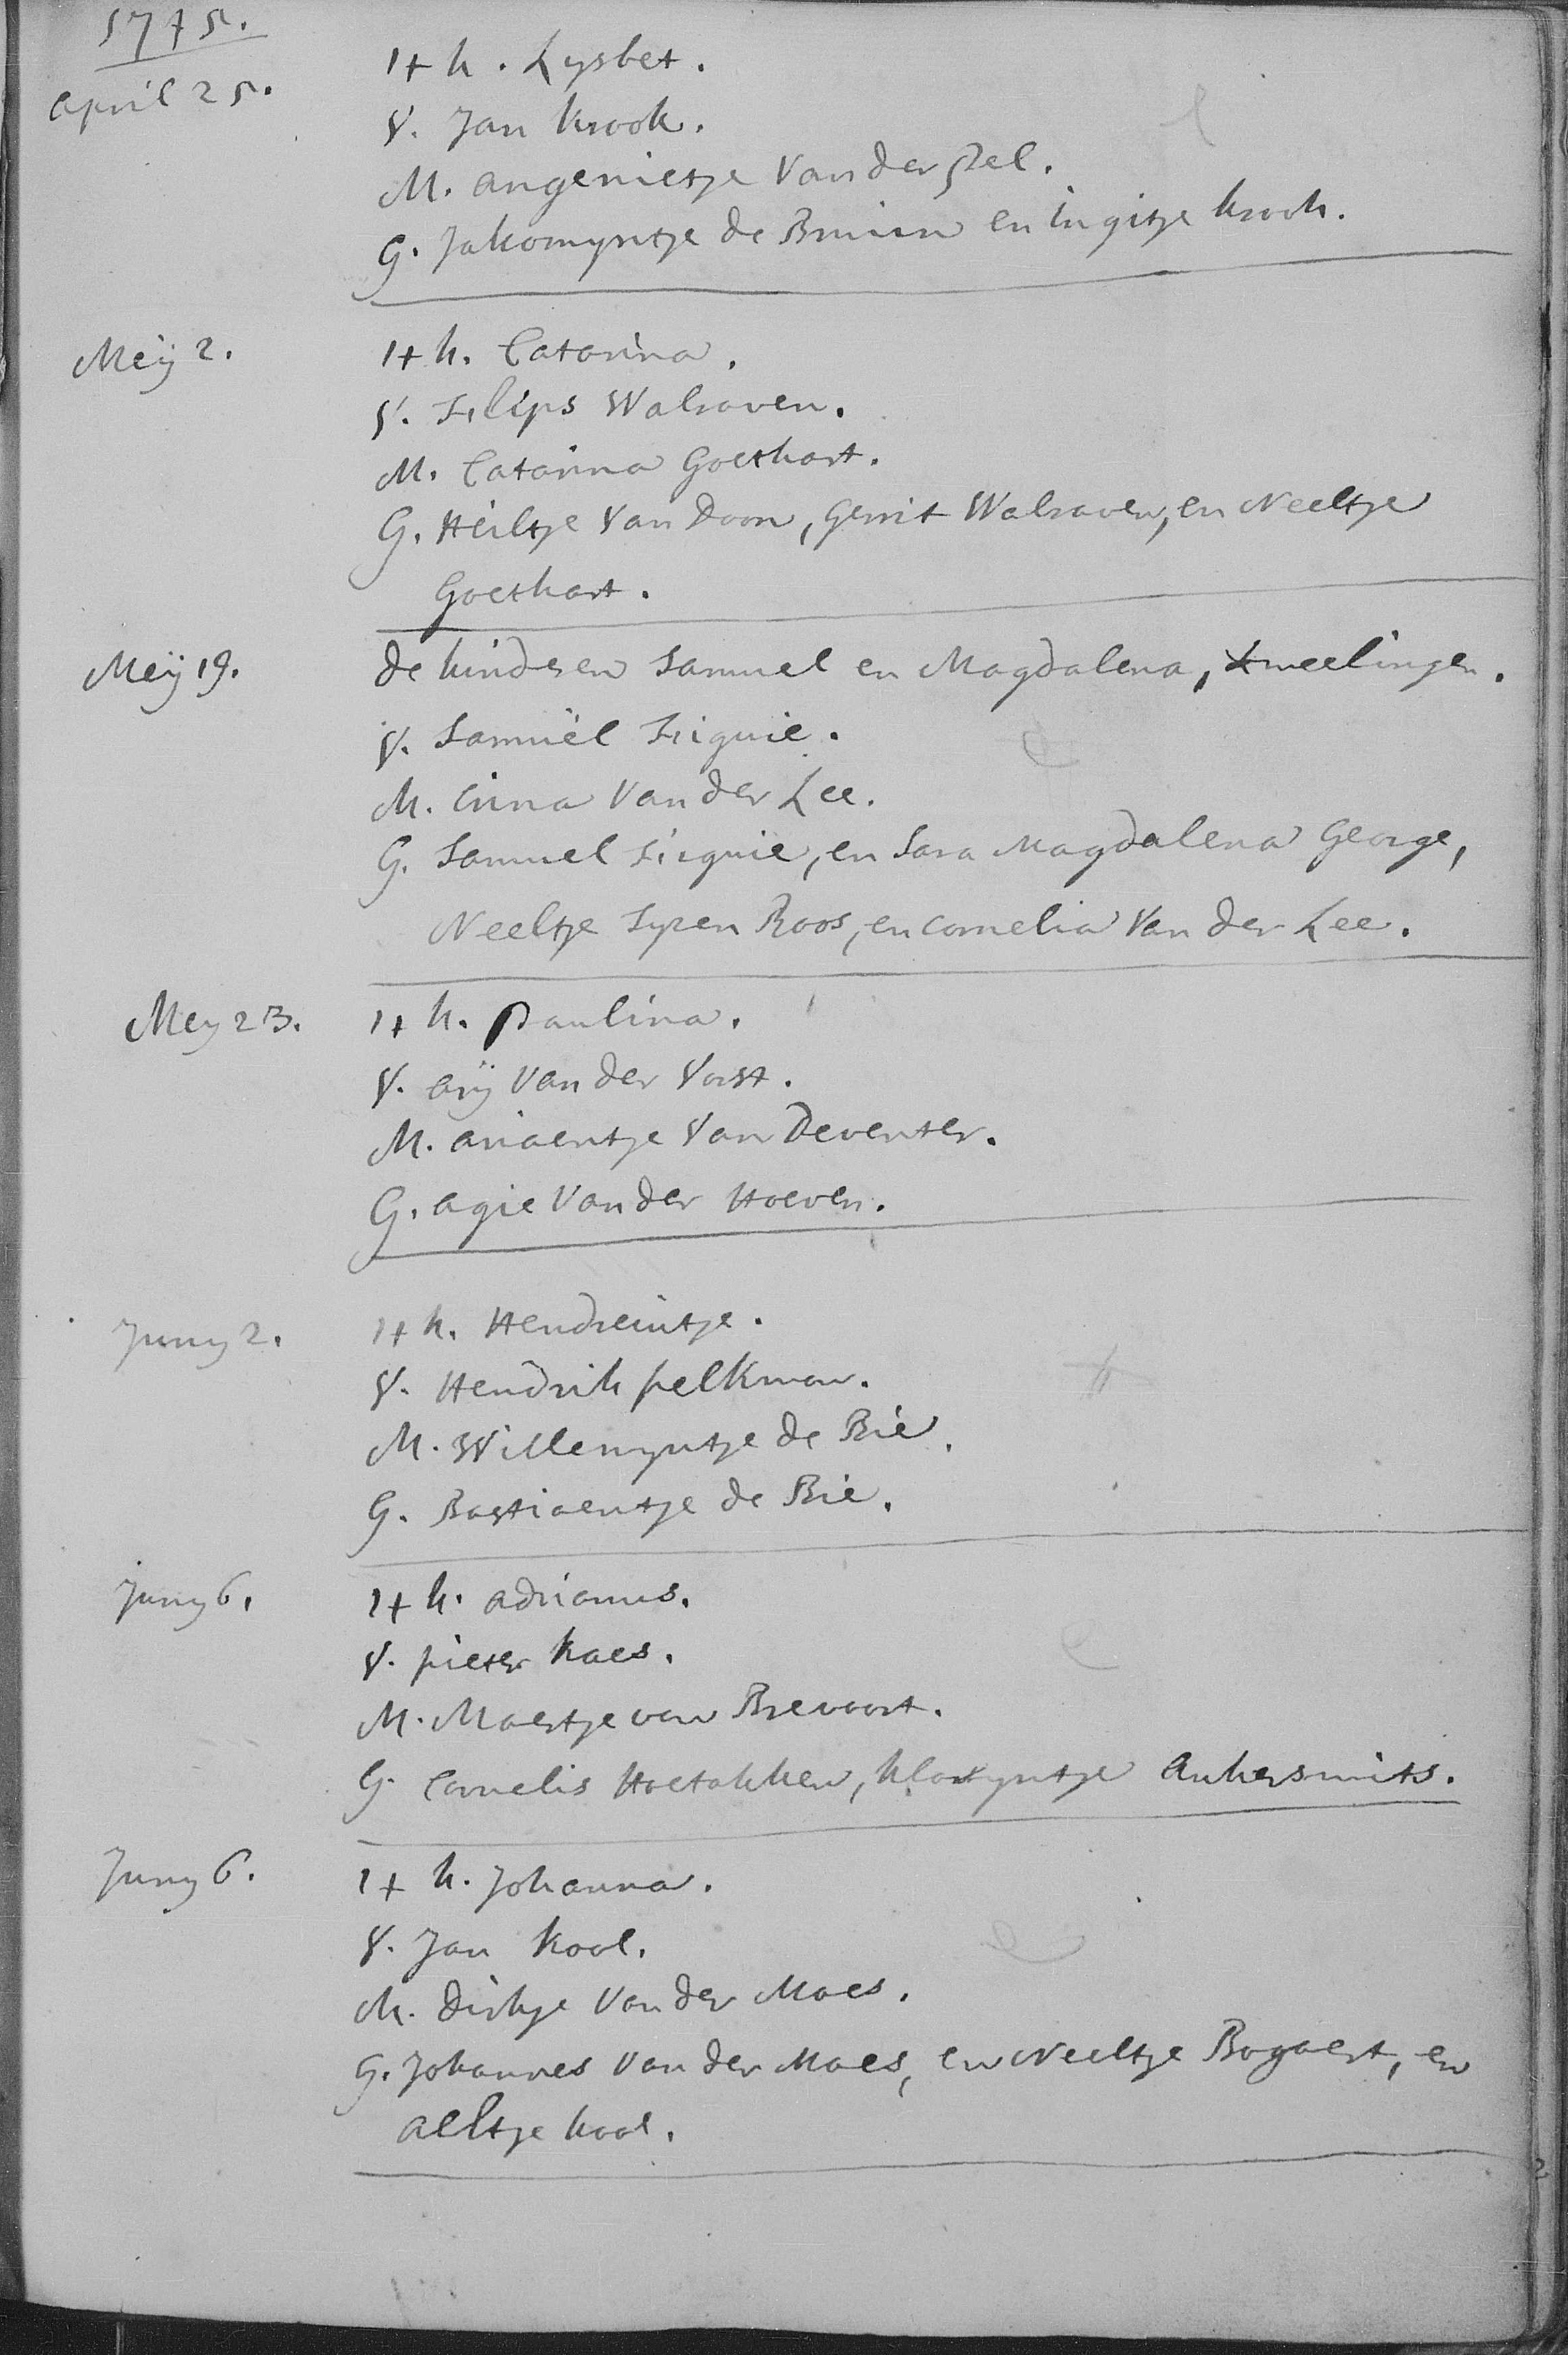 1745.
April 25.
1t k. Lysbet.
V. Jan Krook.
M. Angenietje Van der Pel.
G. Jakomyntje de Bruin en Ingitje Krook.
Meÿ 2.
1t k. Catarina.
V. Filips Walraven.
M. Catarina Goethart.
G. Heiltje Van Doorn, Gerrit Walraven, en Neeltje
Goethart.
Meÿ 19.
de kinderen Samuel en Magdalena, tweelingen.
V. Samuël Figuie.
M. Anna Van der Lee.
G. Samuel Figuie, en Sara Magdalena George,
Neeltje Roos, en Cornelia Van der Lee.
Mey 23.
1t k. Paulina.
V. Arÿ Van der Vorst.
M. Ariaentje Van Deventer.
G. Agie Van der Hoeven.
Juny 2.
1t k. Hendreintje.
V. Hendrik Pelkman.
M. Willemyntje de Bie.
G. Bastiaentje de Bie.
Juny 6.
1t k. Adrianus.
V. Pieter Kaes.
M. Maertje van Brevoort.
G. Cornelis Hoetakker, Ankersmits.
Juny 6.
1t k. Johanna.
V. Jan Kool.
M. Dirkje Van der Maes.
G. Johannes Van der Maes, en Neeltje Bogaert, en
Aeltje Kool.